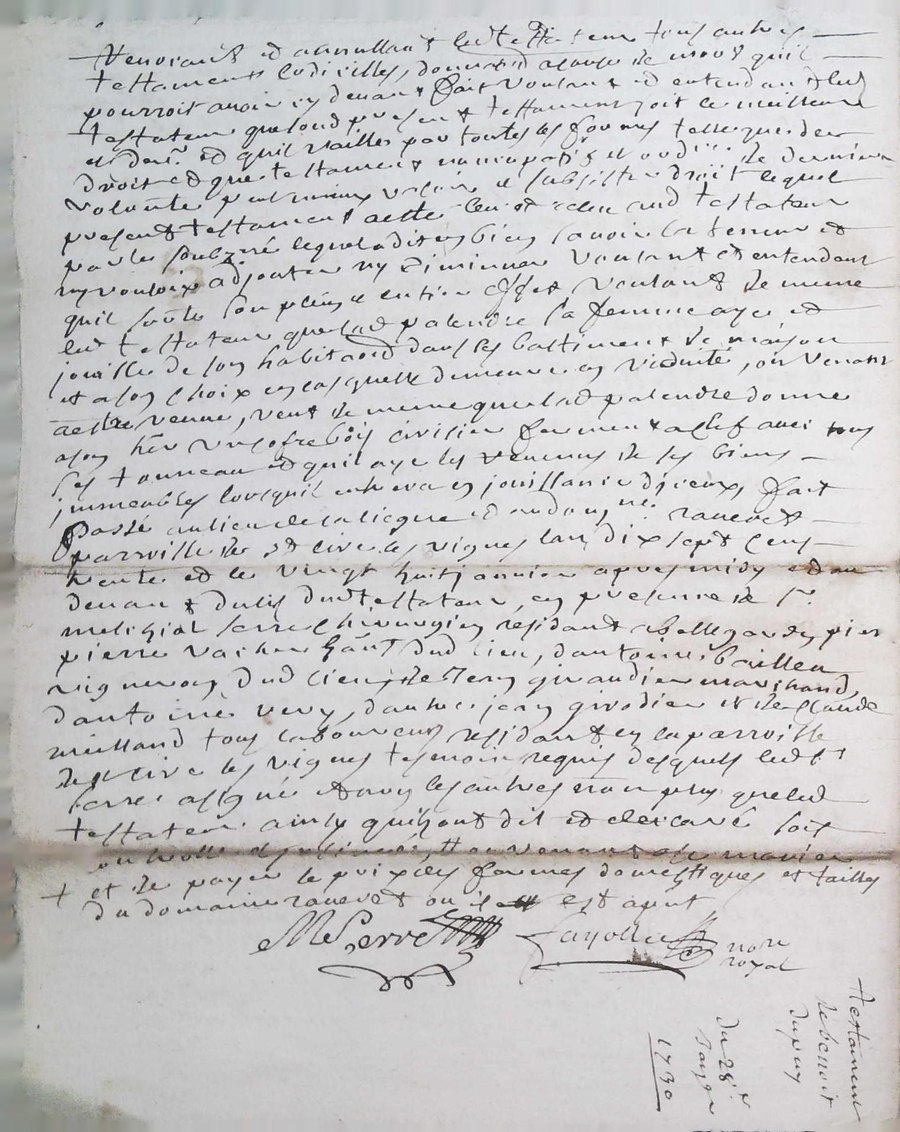 Revocant et annullant ledt testateur tous autres
testaments codicilles, donnaōn a cause de mort quil
pourroit avoir cy devant fait voulant et entendant led
testateur que son present testament soit le meilleur
et der.r et quil vaille par toutes les formes telles que de
droit et que testament noncupatif et ord.re de derniere
volonté peut mieux valoir et subsister de droit lequel
present testament a este leu et releu aud testateur
par le soubzné lequel a dit sy bien savoir la teneur et
ny vouloir adjouter ny diminuer voulant et entendant
quil sorte son plein et entier effet voulant de meme
led testateur que lad palendre sa femme aye et
jouisse de son habitaōn dans les battiments de maison
et a son choix en cas quelle demeure en viduité, ou venant
a estre venue, veut de meme que lad palendre donne
a son her un cofre bois fermant a clef avec tous
ses tonneau et quil aye les revenus de ses biens
immeubles lorsquil entrera en jouissance diceux, fait
passé au lieu de et au dom.ne ravevet
parroisse de st cire les vignes lan dix sept cens
trente et le vingt huit janvier apres midy et au
devant du lit dud testateur, en presence de sr.
melchial serre chirurgien residant a bellegarde, pier
pierre vacher dud lieu, dantoine baillea
vigneron dud lieu, de remy giraudier marchand,
dantoine very, dautre jean girodier et de claude
meilland tous laboureurs residants en la parroisse
de st cire les vignes tesmoin requis desquels ledt
serre a signé et non les autres non plus que led
testateur ainsy quils ont dit et declaré soit
+ et de payer le prix des fermes domestiques et tailles
du domaine ravevet ou il est agent
M Serre Fayolle nore
royal
testament
de benoit
dupuy
du 28r
janr
1730